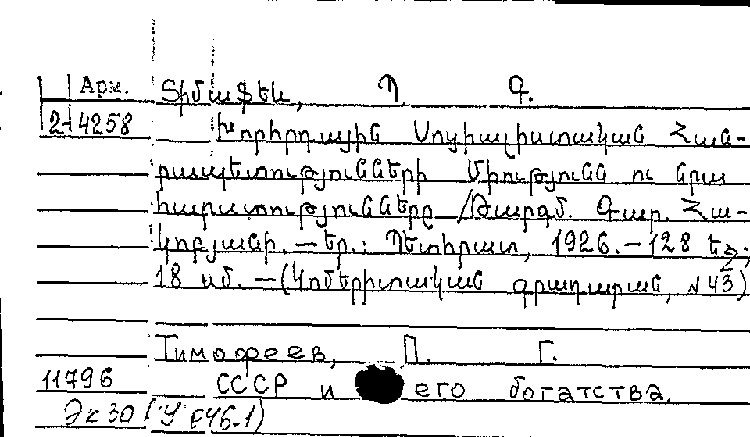 Арм.
Տիմաֆեև, Պ Գ.
2-4258
Խորհրդային Սոցիալիստական Հան-
րապետությունների Միությունն ու նրա
հարստությունները /Թարգմ. Գար. Հա-
կոբյանի. — Եր.: Պետհրատ, 1926. — 128 եջ;
18 սմ. — (Կոմերիտական գրադարան, № 43)
Тимофеев, П. Г.
11796
СССР и его богатства.
Эк 30